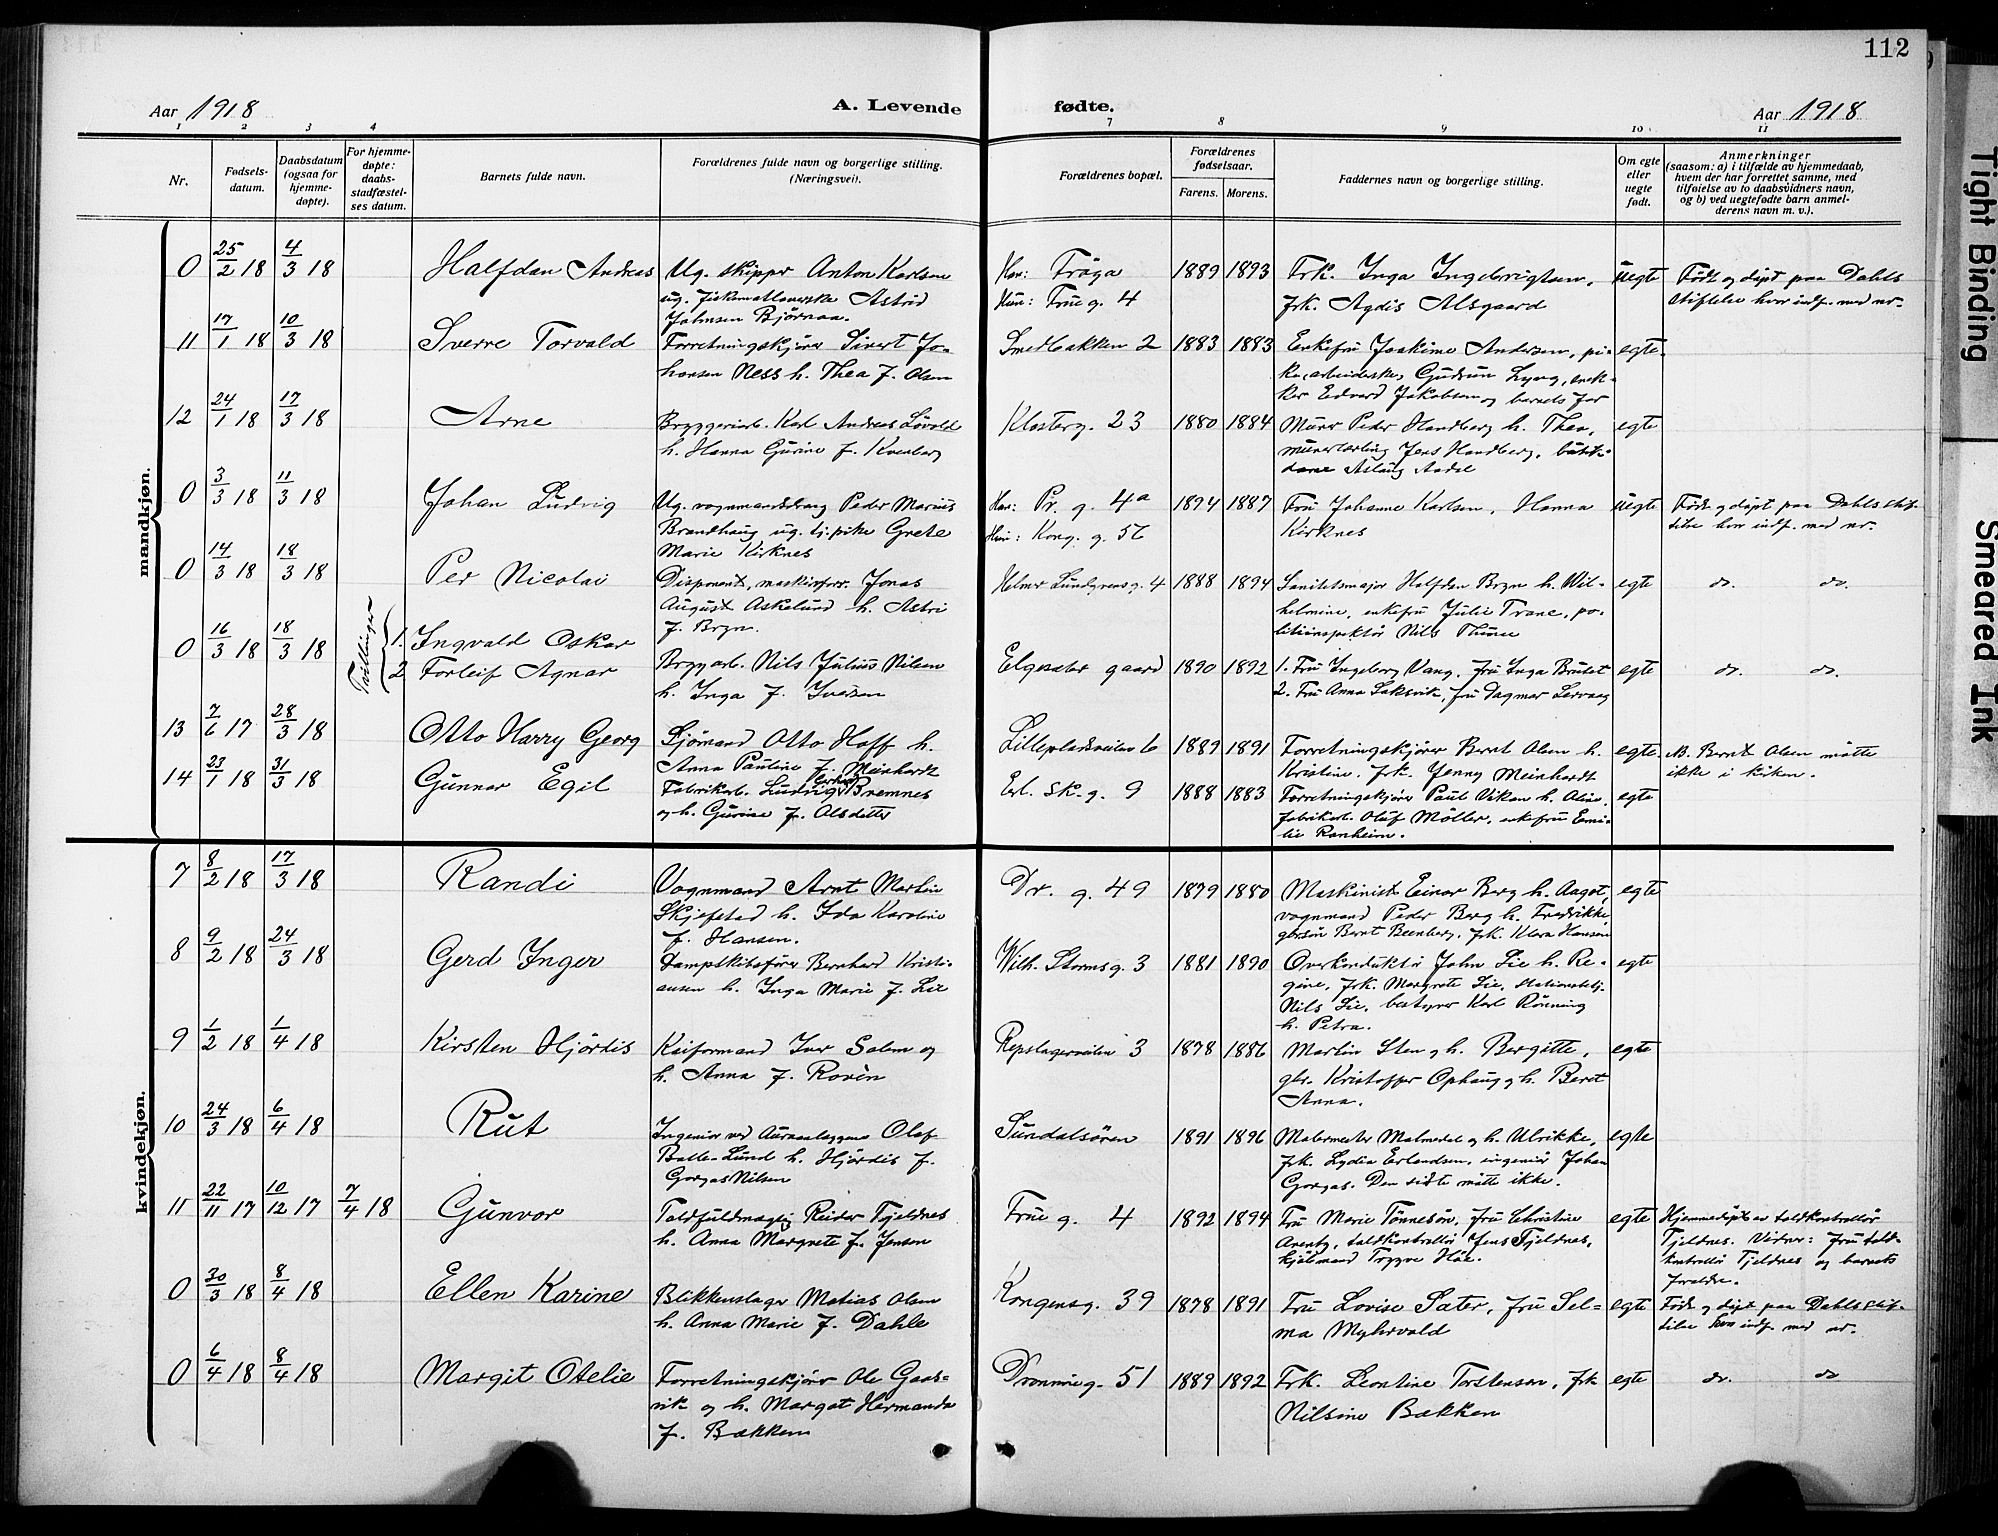 112
Aar 1918
A. Levende
fødte.
Aar 1918
1 2 3 4 7 8 9 10 11
Nr.
Fødsels-
datum.
Daabsdatum
(ogsaa for
hjemme-
døpte).
For hjemme-
døpte:
daabs-
stadfæstel-
ses datum.
Barnets fulde navn.
Forældrenes fulde navn og borgerlige stilling.
(Næringsvei).
Forældrenes bopæl.
Forældrenes
fødselsaar.
Farens. Morens.
Faddernes navn og borgerlige stilling.
Om egte
eller
uegte
født.
Anmerkninger
(saasom: a) i tilfælde av hjemmedaab,
hvem der har forrettet samme, med
tilføielse av to daabsvidners navn,
og b) ved uegtefødte barn anmel-
derens navn m. v.).
mandkjøn.
0 25/2 18 4/3 18 Halfdan Andreas
Ug. skipper Anton Karlsen
ug. Astrid
Johnsen Bjørnaa.
Han: Frøya
Hun: Frue g. 4
1889 1893
Frk. Inga Ingebrigtsen,
frk. Agdis Alsgaard
uegte
Født og døpt paa Dahls
stiftelse hvor indf. med nr.
11 17/1 18 10/3 18 Sverre Torvald
Forretningskjører Sivert Jo-
hansen Ness h. Thea f. Olsen
Smedbakken 2
1883 1883
Enkefru Joakime Andersen, pi-
ke, arbeiderske, Gudrun Lyng, snek-
ker Edvard Jakobsen og barnets far
egte
12 24/1 18 17/3 18 Arne
Bryggeriarb. Karl Andreas Løvold
h. Hanna Gurine f. Kvenberg
Klosterg. 23
1880 1884
Murer Peder Handberg h. Thea,
murerlærling Jens Handberg, butik-
dame Aslaug Aadal
egte
0 3/3 18 11/3 18 Johan Ludvig
Ug. vognmandsdreng Peder Marius
Brandhaug ug. tj.pike Grete
Marie Kirknes
Han: Pr. g. 4a
Hun: Kong. g. 56
1894 1887
Fru Johanne Karlsen, Hanna
Kirknes
uegte
Født og døpt paa Dahls stif-
telse hvor indf. med nr.
0 14/3 18 18/3 18 Per Nicolai
Disponent, maskinforr. Jonas
August Askelund h. Astri
f. Bryn.
Helmer Lundgrens g. 4
1888 1894
Sanitetsmajor Halfdan Bryn h. Wil-
helmine, enkefru Julie Trane, po-
litiinspektør Nils Thune
egte
do. do.
0 16/3 18 18/3 18 Tvillinger
1. Ingvald Oskar
2 Torleif Agnar
Bryggarb. Nils Julius Nilsen
h. Inga f. Iversen
Elgeseter gaard
1890 1892
1. Fru Ingeborg Vang, fru Inga Brutet
2. Fru Anna Saksvik, fru Dagmar Lervaag
egte
do. do.
13 7/6 17 28/3 18 Otto Harry Georg
Sjømand Otto Hoff h.
Anna Pauline f. Meinhardt
Lillepladsveien 6
1889 1891
Forretningskjører Bernt Olsen h.
Kristine, frk. Jenny Meinhardt
egte
N. Bernt Olsen møtte
ikke i kirken.
14 23/1 18 31/3 18 Gunnar Egil
Fabrikarb. Ludvig Bremnes
og h. Gurine f. Alsdatter
Erl. Sk. g. 9
1888 1883
Forretningskjører Paul Viken h. Oline,
fabrikarb. Oluf Møller, enkefru Emi-
lie Ranheim.
egte
kvindekjøn.
7 8/2 18 17/3 18 Randi
Vognmand Arnt Martin
Skjefstad h. Ida Karoline
f. Hansen.
Dr. g. 49
1879 1880
Maskinist Einar Berg h. Aagot,
vognmand Peder Berg h. Fredrikke,
Bernt Beenberg, frk. Klara Hansen
egte
8 9/2 18 24/3 18 Gerd Inger
Dampskibsfører Bernhard Kristi-
ansen h. Inga Marie f. Lie
Wilh. Stormsg. 3
1881 1890
Overkonduktør John Lie h. Re-
gine, frk. Margrete Lie, stationsbetj.
Nils Lie, bestyrer Karl Rønning
h. Petra.
egte
9 1/2 18 1/4 18 Kirsten Hjördis
Kaiformand Iver Salem og
h. Anna f. Rovén
Repslagerveien 3
1878 1886
Martin Sten og h. Bergitte,
gbr. Kristoffer Ophaug og h. Beret
Anna.
egte
10 24/3 18 6/4 18 Rut
Ingeniør ved Auraanlæggene Olaf
Balle-Lund h. Hjördis f.
Gorgas Nilsen
Sundalsören
1891 1896
Malermester Malmedal og h. Ulrikke,
frk. Lydia Erlandsen, ingeniør Johan
Gorgas. Den sidste møtte ikke.
egte
11 22/11 17 10/12 17 7/4 18 Gunvor
Toldfuldmægtig Reidar Tjeldnes
h. Anna Margrete f. Jensen
Frue g. 4
1892 1894
Fru Marie Tønnesøn, fru Christine
Arentz, toldkontrollør Jens Tjeldnes,
Trygve Høe.
egte
Hjemmedøpt av toldkontrollør
Tjeldnes. Vidner: fru told-
kontrollør Tjeldnes og barnets
forældre.
0 30/3 18 8/4 18 Ellen Karine
Blikkenslager Matias Olsen
h. Anna Marie f. Dahle
Kongensg. 39
1878 1891
Fru Lovise Sæter, fru Sel-
ma Myhrvold
egte
Født og døpt paa Dahls stif-
telse hvor indf. med nr.
0 6/4 18 8/4 18 Margit Otelie
Forretningskjører Ole Gaas-
vik og h. Margot Hermanda
f. Bækken
Dronning g. 51
1889 1892
Frk. Leontine Torstensen, frk
Nilsine Bækken
egte
do. do
Tight Binding
Smeared Ink